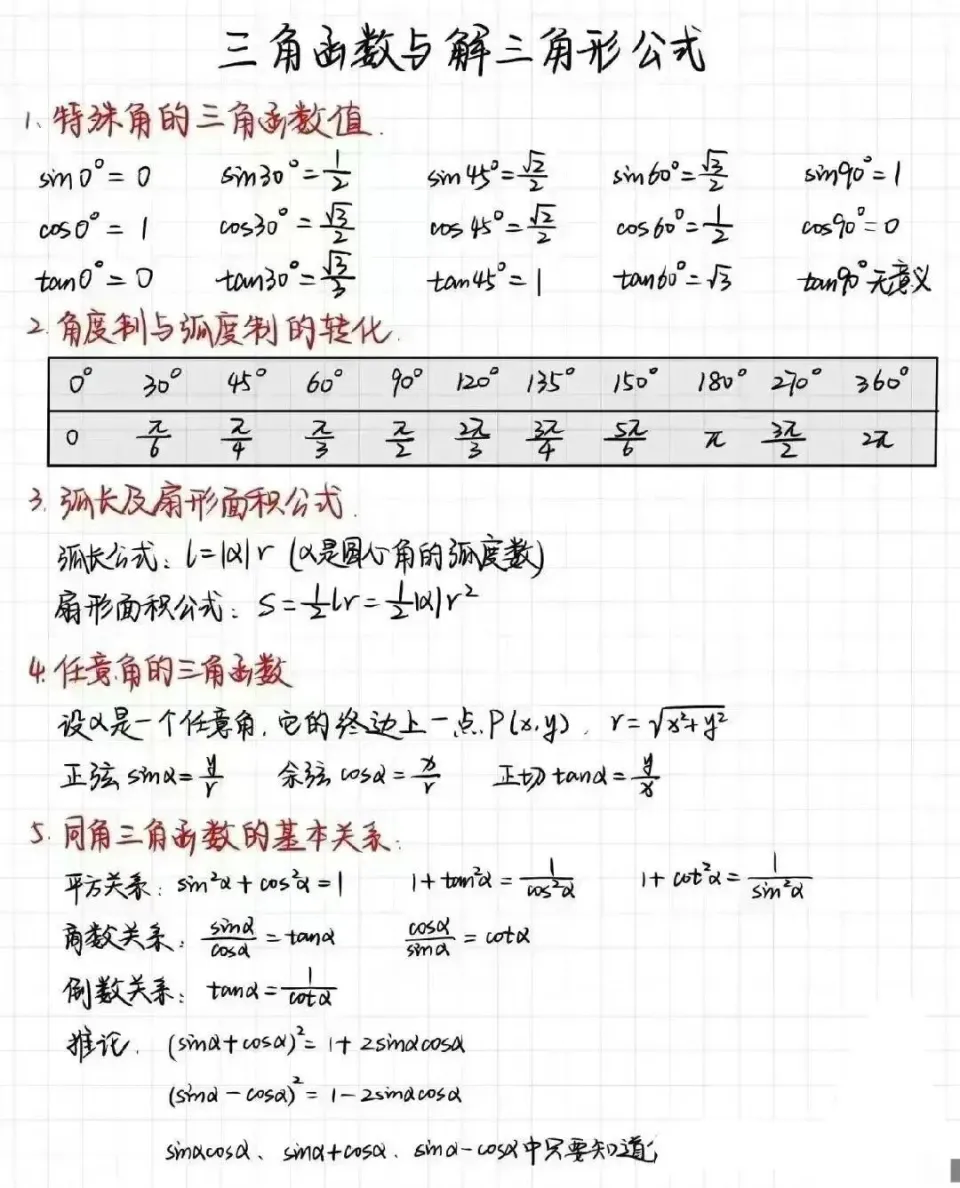 三角函数与解三角形公式
1、特殊角的三角函数值.
sin0°=0 sin30°=1/2 sin45°=√2/2 sin60°=√3/2 sin90°=1
cos0°=1 cos30°=√3/2 cos45°=√2/2 cos60°=1/2 cos90°=0
tan0°=0 tan30°=√3/3 tan45°=1 tan60°=√3 tan90°无意义
2.角度制与弧度制的转化.
0° 30° 45° 60° 90° 120° 135° 150° 180° 270° 360°
0 π/6 π/4 π/3 π/2 2π/3 3π/4 5π/6 π 3π/2 2π
3.弧长及扇形面积公式.
弧长公式：l=|α|r (α是圆心角的弧度数)
扇形面积公式：S=1/2lr=1/2|α|r²
4.任意角的三角函数
设α是一个任意角，它的终边上一点P(x,y)，r=√(x²+y²)
正弦sinα=y/r 余弦cosα=x/r 正切tanα=y/x
5.同角三角函数的基本关系：
平方关系：sin²α+cos²α=1 1+tan²α=1/cos²α 1+cot²α=1/sin²α
商数关系：sinα/cosα=tanα cosα/sinα=cotα
倒数关系：tanα=1/cotα
推论. (sinα+cosα)²=1+2sinαcosα
(sinα-cosα)²=1-2sinαcosα
sinαcosα、sinα+cosα、sinα-cosα中只要知道